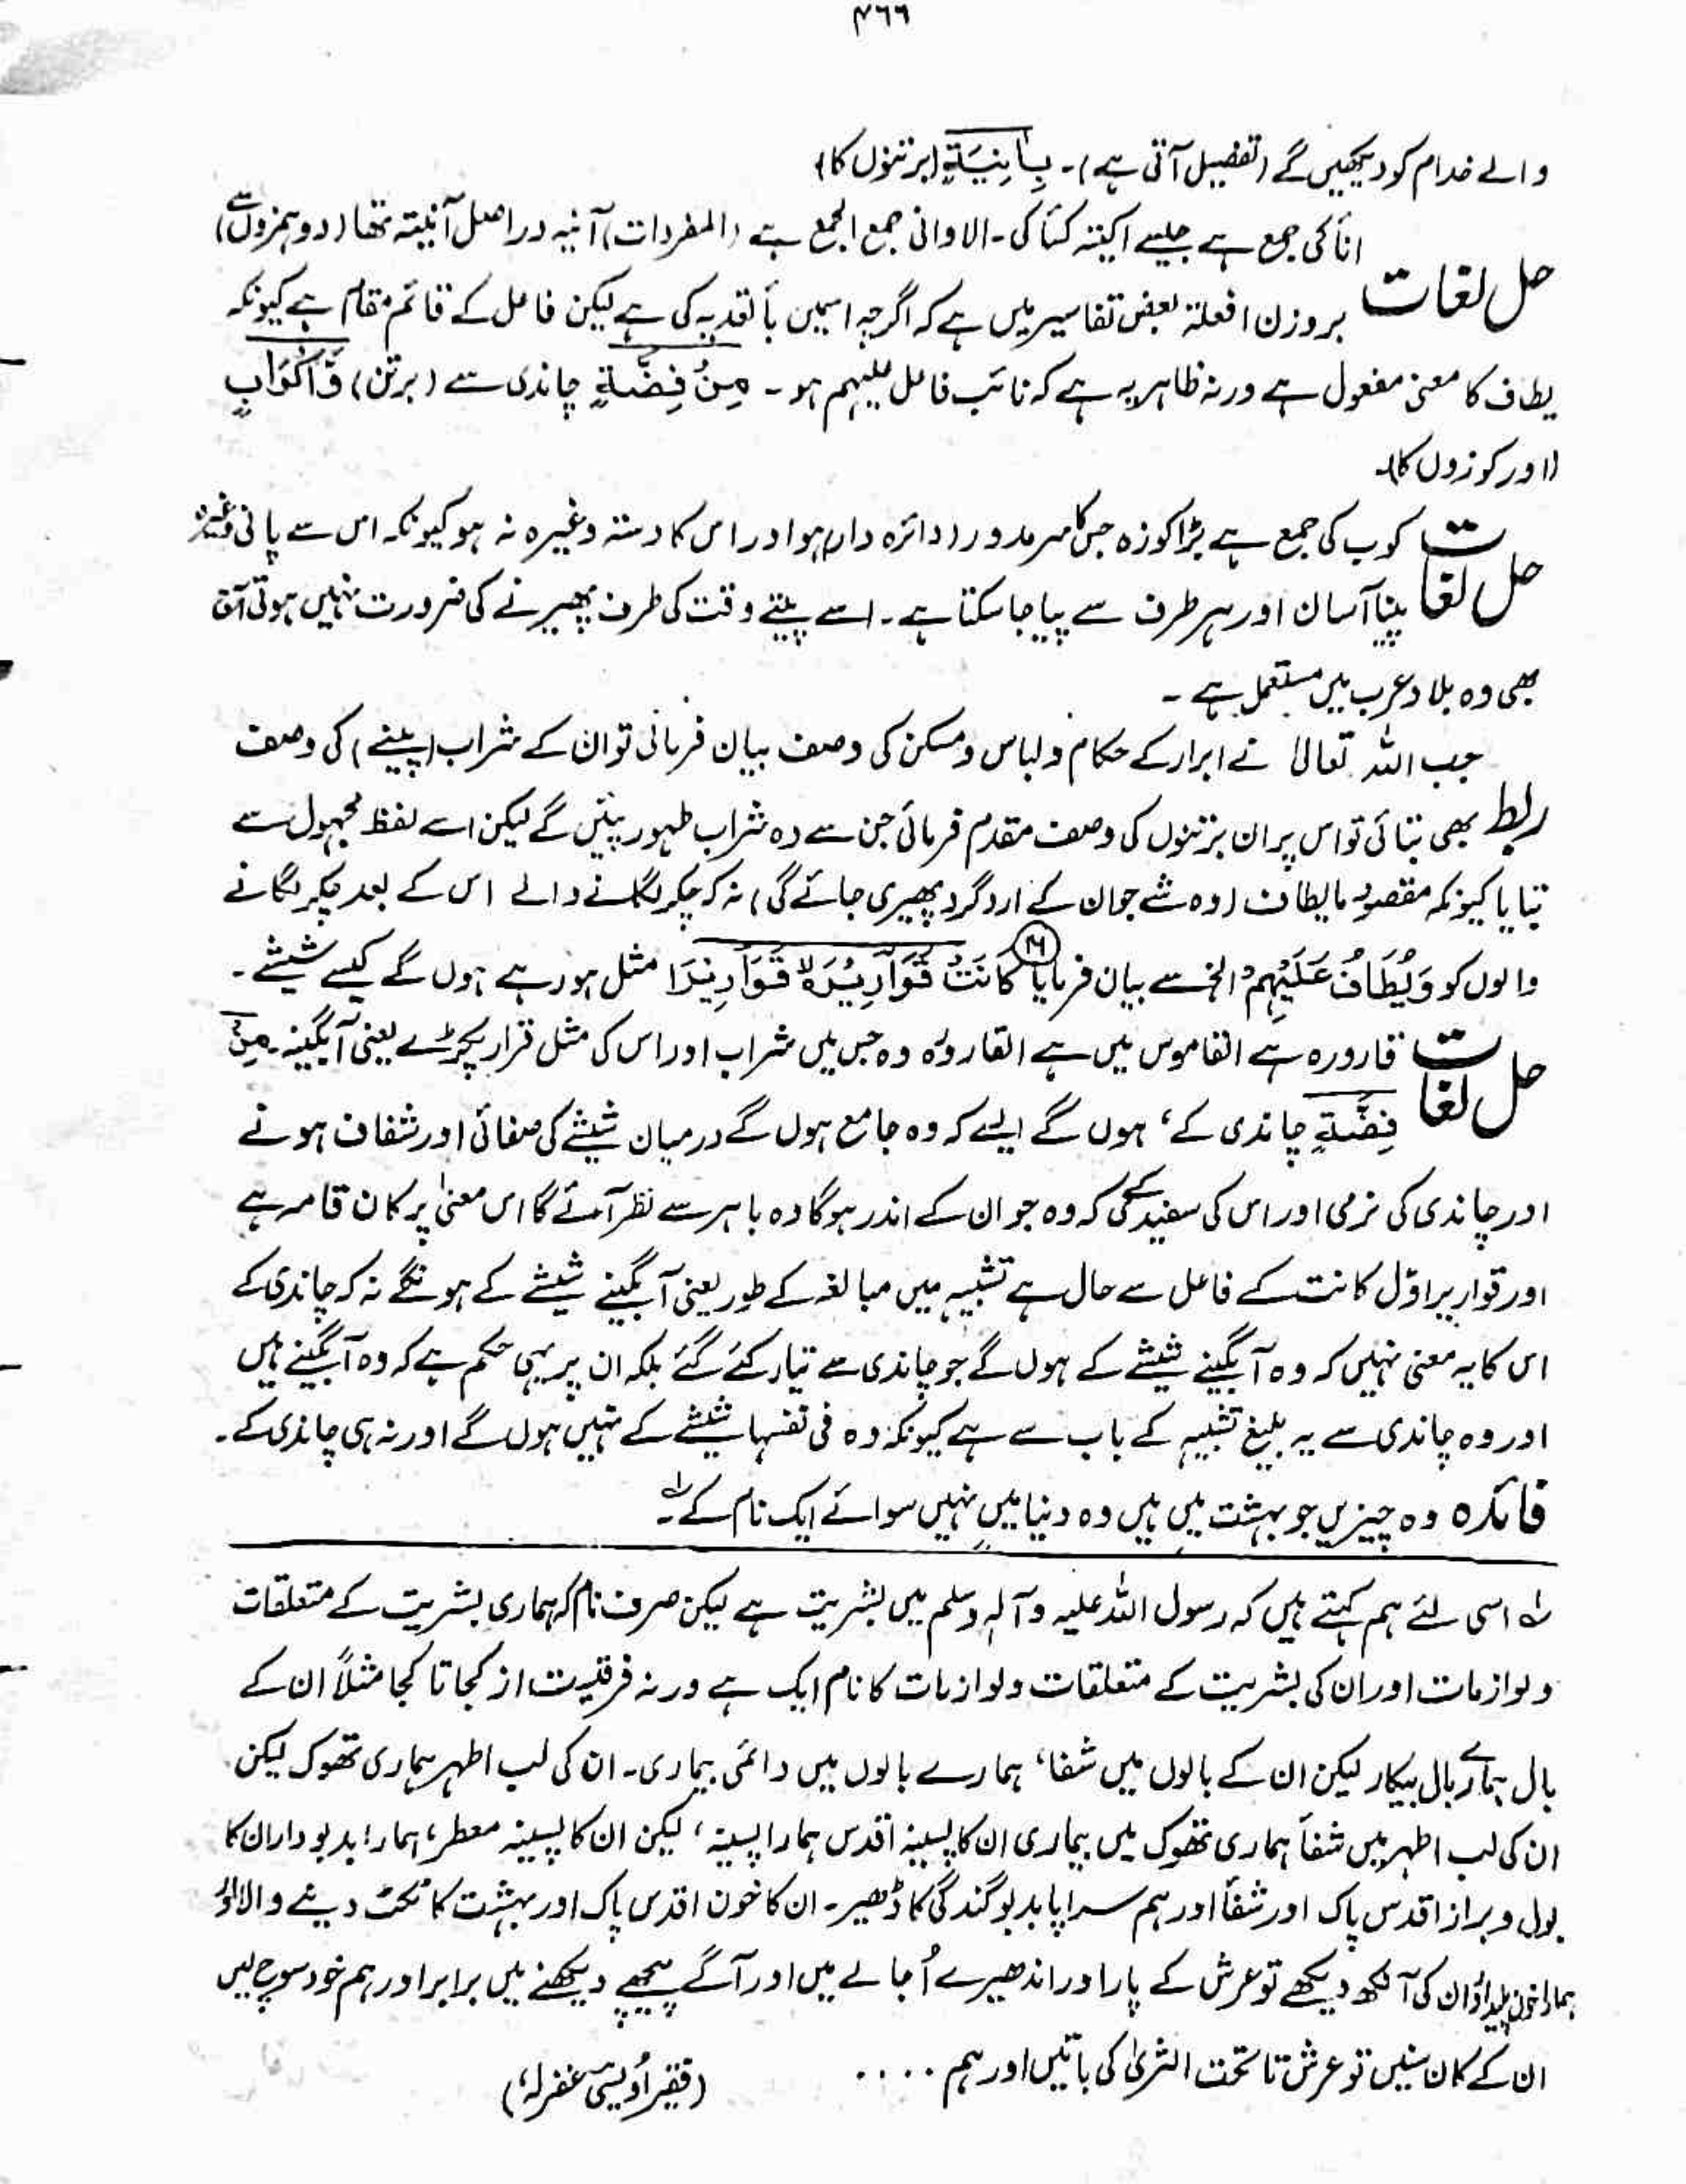 ۴۶۶
والے خدام کو دیکھیں گے (تفصیل آتی ہے)۔ بِاٰنِیَةٍ (برتنوں کا)
حل لغات
اناً کی جمع ہے جیسے اکیتہ کسأ کی۔ الاوانی جمع الجمع ہے (المفردات) آنیہ دراصل أأنیتہ تھا (دو ہمزوں سے)
بروزن افعلة بعض تفاسیر میں ہے کہ اگرچہ اسمیں بأ تعدیہ کی ہے لیکن فاعل کے قائم مقام ہے کیونکہ
یطاف کا معنیٰ مفعول ہے ورنہ ظاہر یہ ہے کہ نائب فاعل علیہم ہو۔ مِنْ فِضَّةٍ چاندی سے (برتن) وَّاَکْوَابٍ
(اور کوزوں کا)۔
حل لغات
کوب کی جمع ہے بڑا کوزہ جس کا سر مدور (دائرہ دار) ہو اور اس کا دستہ وغیرہ نہ ہو کیونکہ اس سے پانی وغیرہ
پینا آسان اور ہر طرف سے پیا جا سکتا ہے۔ اسے پیتے وقت کی طرف پھیرنے کی ضرورت نہیں ہوتی آج
بھی وہ بلاد عرب میں مستعمل ہے۔
ربط
جب اللہ تعالیٰ نے ابرار کے حکام و لباس و مسکن کی وصف بیان فرمائی تو ان کے شراب (پینے) کی وصف
بھی بتائی تو اس پر ان برتنوں کی وصف مقدم فرمائی جن سے وہ شراب طہور پئیں گے لیکن اسے لفظ مجہول سے
بتایا کیونکہ مقصود مایطاف (وہ شے جو ان کے ارد گرد پھیری جائے گی) نہ کہ چکر لگانے والے اس کے بعد چکر لگانے
والوں کو وَیُطَافُ عَلَیْہِمْ الخ سے بیان فرمایا کَانَتْ قَوَارِیْرَا۠ قَوَارِیْرَا مثل ہو رہے ہوں گے کیسے شیشے۔
حل لغات
قارورہ ہے القاموس میں ہے القارورہ وہ جس میں شراب اور اس کی مثل قرار پکڑے یعنی آبگینہ۔ مِنْ
فِضَّةٍ چاندی کے، ہوں گے ایسے کہ وہ جامع ہوں گے درمیان شیشے کی صفائی اور شفاف ہونے
اور چاندی کی نرمی اور اس کی سفیدی کے کہ وہ جو ان کے اندر ہوگا وہ باہر سے نظر آئے گا اس معنیٰ پر کان تامہ ہے
اور قواریر اوّل کانت کے فاعل سے حال ہے تشبیہ میں مبالغہ کے طور یعنی آبگینے شیشے کے ہونگے نہ کہ چاندی کے
اس کا یہ معنی نہیں کہ وہ آبگینے شیشے کے ہوں گے جو چاندی سے تیار کئے گئے بلکہ ان پر یہی حکم ہے کہ وہ آبگینے ہیں
اور وہ چاندی سے یہ بلیغ تشبیہ کے باب سے ہے کیونکہ وہ فی نفسہا شیشے کے نہیں ہوں گے اور نہ ہی چاندی کے۔
فائدہ وہ چیزیں جو بہشت میں ہیں وہ دنیا میں نہیں سوائے ایک نام کے۔ لہ
لہ اسی لئے ہم کہتے ہیں کہ رسول اللہ علیہ و آلہ وسلم میں بشریت ہے لیکن صرف نام کہ ہماری بشریت کے متعلقات
و لوازمات اور ان کی بشریت کے متعلقات و لوازمات کا نام ایک ہے ورنہ فرقیت از کجا تا کجا مثلاً ان کے
بال ہمارے بال بیکار لیکن ان کے بالوں میں شفا، ہمارے بالوں میں دائمی بیماری۔ ان کی لب اطہر ہماری تھوک لیکن
ان کی لب اطہر میں شفأ ہماری تھوک میں بیماری ان کا پسینہ اقدس ہمارا پسینہ، لیکن ان کا پسینہ معطر، ہمارا بدبودار ان کا
بول و براز اقدس پاک اور شفأ اور ہم سراپا بدبو گندگی کا ڈھیر۔ ان کا خون اقدس پاک اور بہشت کا ٹکٹ دینے والا اور
ہمارا خون پلید اور ان کی آنکھ دیکھے تو عرش کے پار اور اندھیرے اُجالے میں اور آگے پیچھے دیکھنے میں برابر اور ہم خود سوچ لیں
ان کے کان سنیں تو عرش تا تحت الثریٰ کی باتیں اور ہم ۔۔۔۔ (فقیر اُویسی غفرلہٗ)